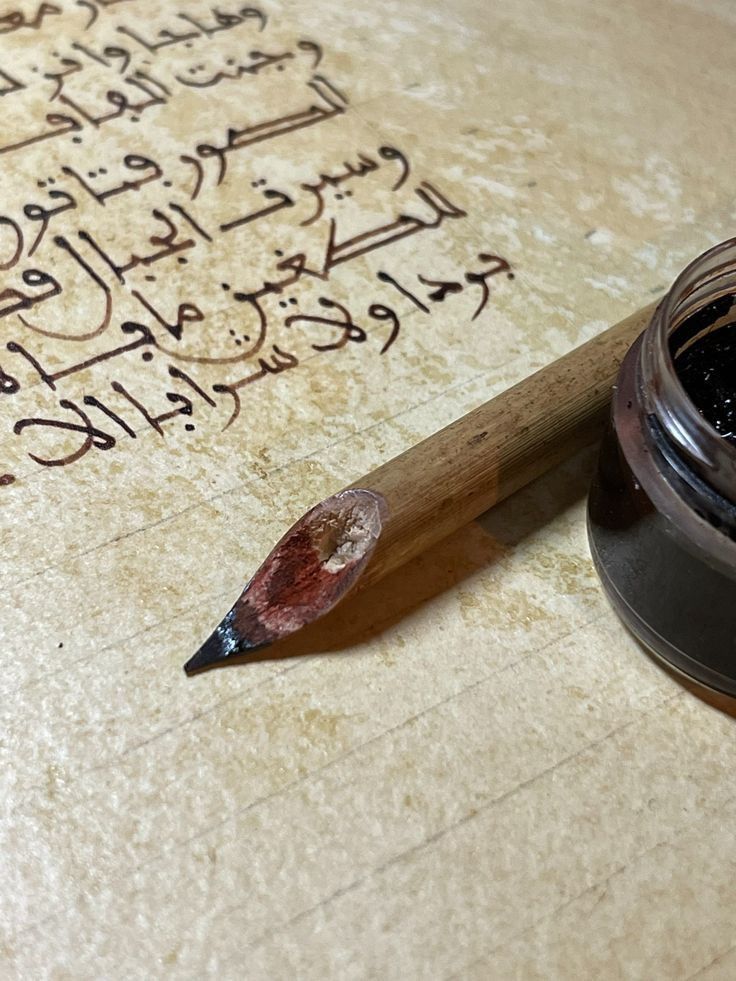 وهاجا وانز
وجنت الفاف
الصور فتاتون
وسيرت الجبال
للطغين مابا
بردا ولا شرابا الا